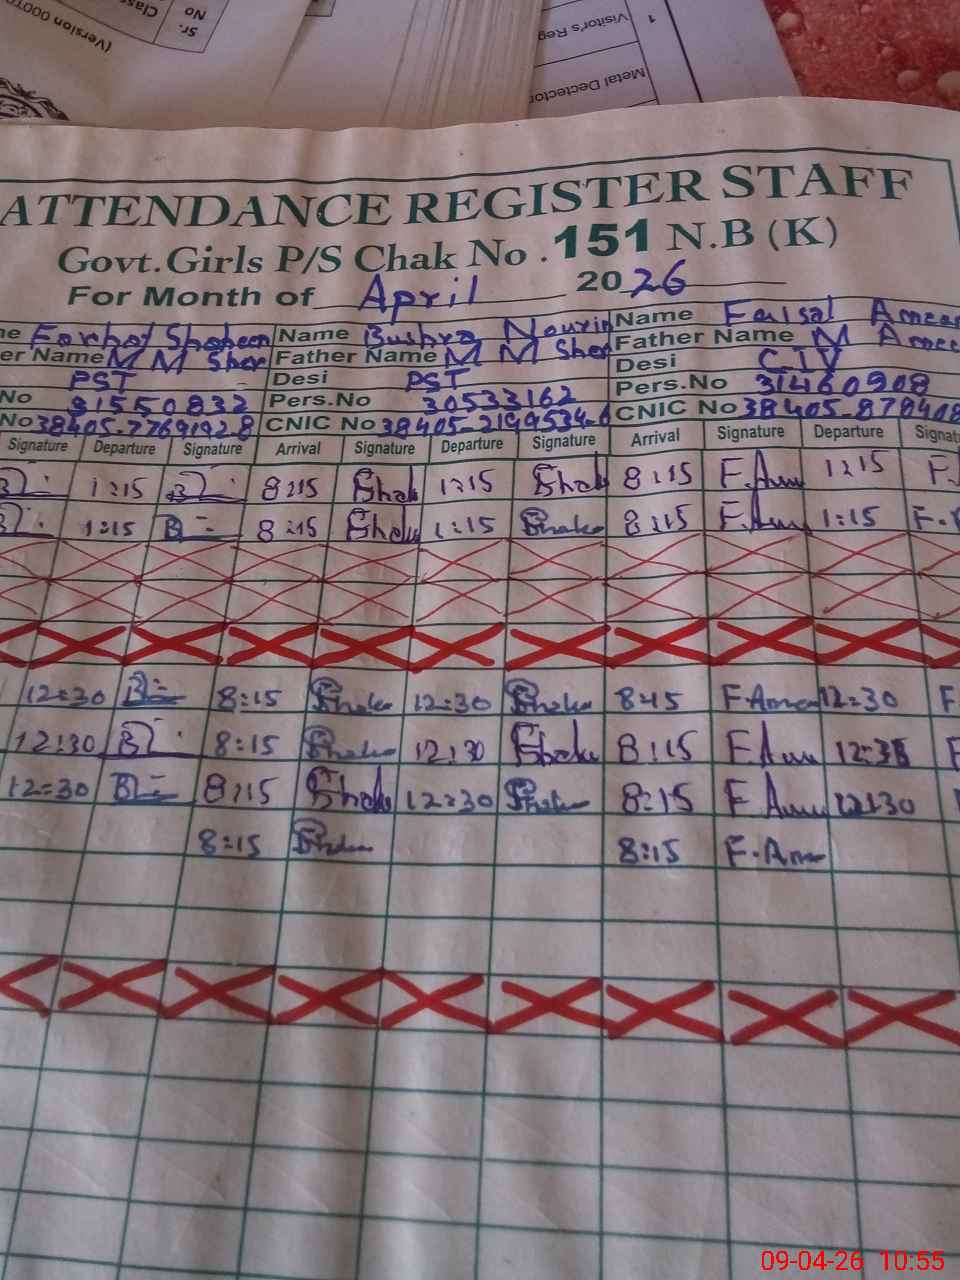 (Version 0001
Class
Sr. No
1 Visitor's Reg
Metal Dectector
ATTENDANCE REGISTER STAFF
Govt.Girls P/S Chak No . 151 N.B (K)
For Month of April 2026
me Farhat Shaheen Name Bushra Nourin Name Faisal Ameer
er Name M M Sher Father Name M M Sher Father Name M Amee
PST Desi PST Desi CIV
No 31550832 Pers.No 30533162 Pers.No 31460908
No 38405-7769192 8 CNIC No 38405-2199534-6 CNIC No 38405-878408
Signature Departure Signature Arrival Signature Departure Signature Arrival Signature Departure Signat
1:15 8:15 1:15 8:15 F.Am 1:15 F.
1:15 8:15 1:15 8:15 F.Am 1:15 F.
12:30 8:15 12:30 8:15 F.Ame 12:30 F.
12:30 8:15 12:30 8:15 F.Am 12:3 F
12:30 8:15 12:30 8:15 F Am 12:30
8:15 8:15 F.Ame
09-04-26 10:55